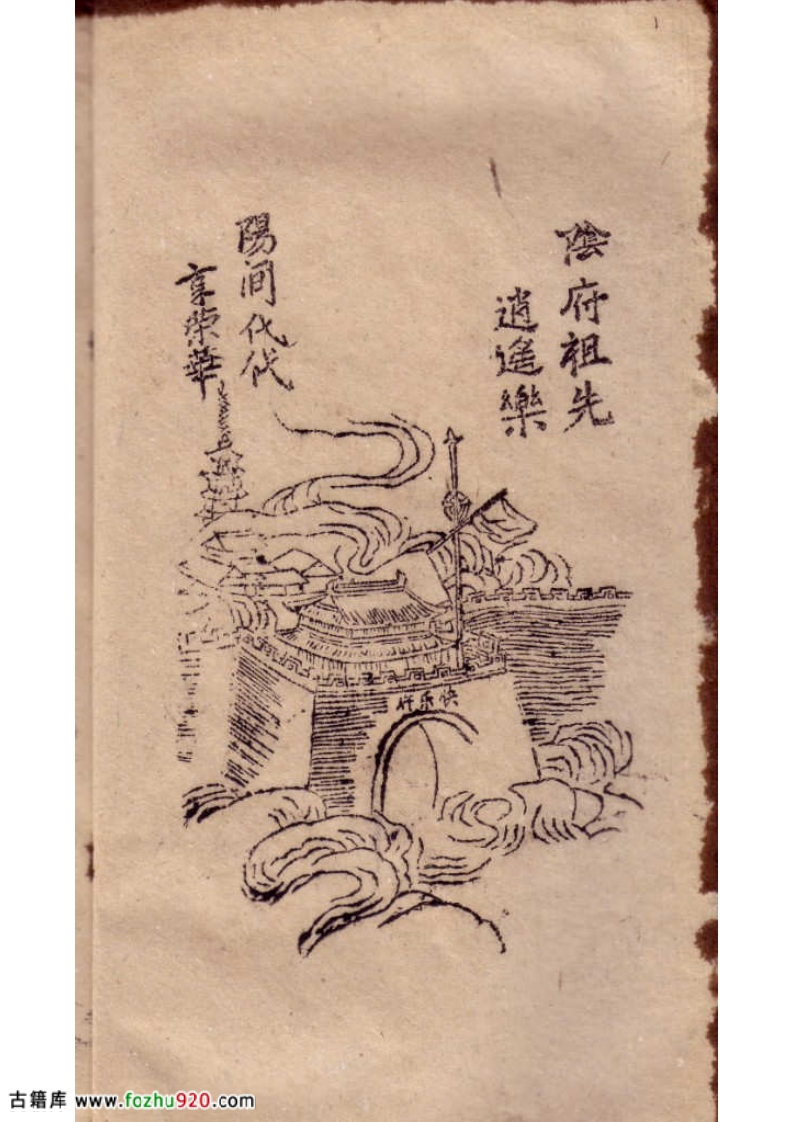 陰府祖先
逍遙樂
陽间代代
享荣華
快乐
古籍库 www.fozhu920.com